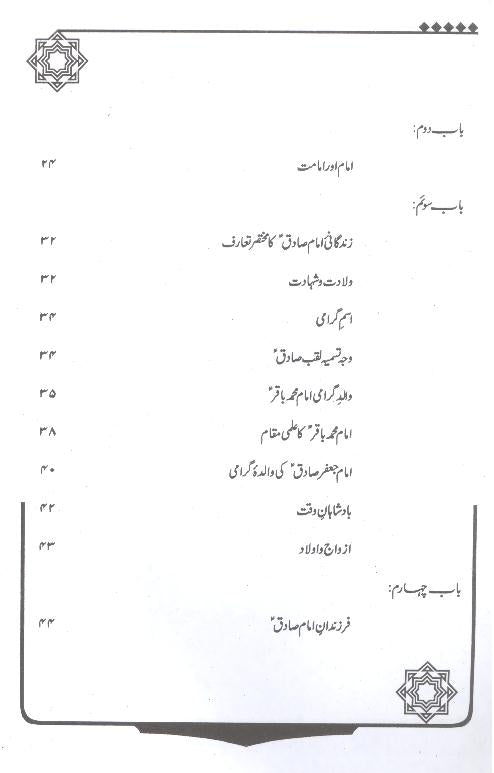 باب دوم:
امام اور امامت ۲۴
باب سوئم:
زندگانیٔ امام صادقؑ کا مختصر تعارف ۳۲
ولادت و شہادت ۳۲
اسمِ گرامی ۳۴
وجہ تسمیہ لقب صادقؑ ۳۴
والدِ گرامی امام محمد باقرؑ ۳۵
امام محمد باقرؑ کا علمی مقام ۳۸
امام جعفر صادقؑ کی والدۂ گرامی ۴۰
بادشاہانِ وقت ۴۲
ازواج و اولاد ۴۳
باب چہارم:
فرزندانِ امام صادقؑ ۴۴